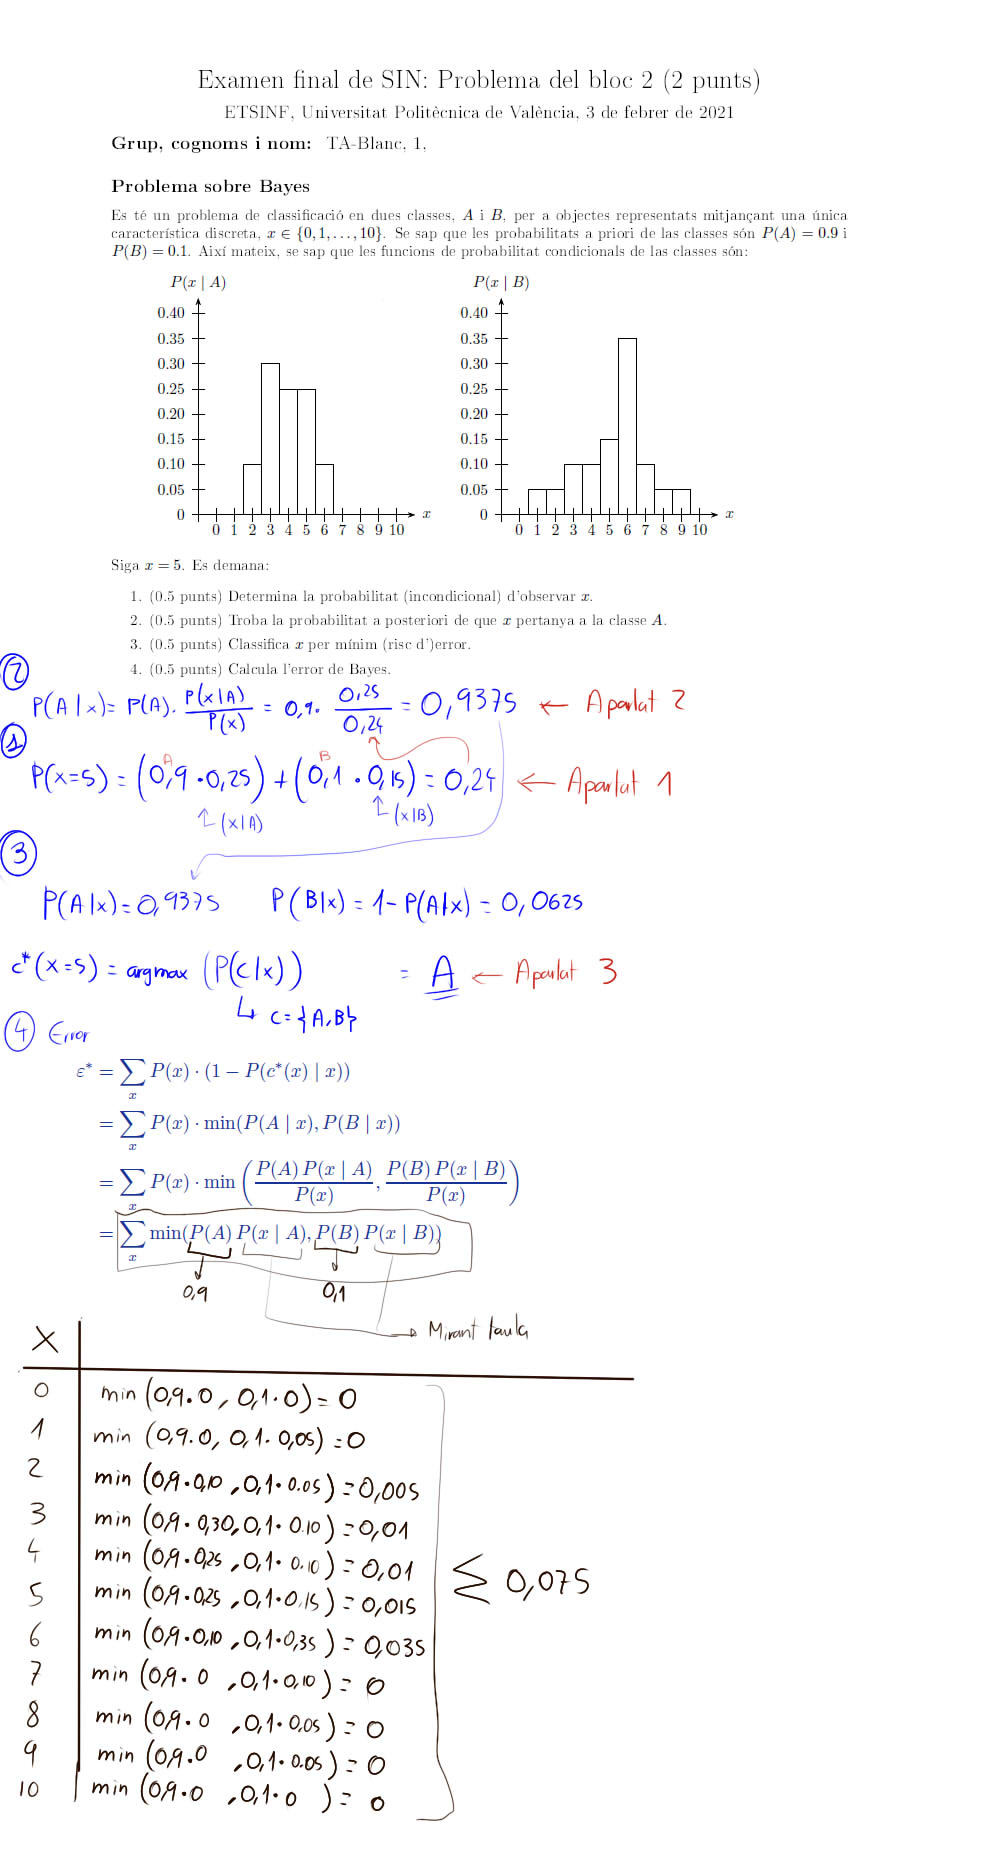 Examen final de SIN: Problema del bloc 2 (2 punts)
ETSINF, Universitat Politècnica de València, 3 de febrer de 2021
Grup, cognoms i nom: TA-Blanc, 1,
Problema sobre Bayes
Es té un problema de classificació en dues classes, A i B, per a objectes representats mitjançant una única
característica discreta, x ∈ {0, 1, . . . , 10}. Se sap que les probabilitats a priori de las classes són P(A) = 0.9 i
P(B) = 0.1. Així mateix, se sap que les funcions de probabilitat condicionals de las classes són:
P(x | A)
0.40
0.35
0.30
0.25
0.20
0.15
0.10
0.05
0
0 1 2 3 4 5 6 7 8 9 10 x
P(x | B)
0.40
0.35
0.30
0.25
0.20
0.15
0.10
0.05
0
0 1 2 3 4 5 6 7 8 9 10 x
Siga x = 5. Es demana:
1. (0.5 punts) Determina la probabilitat (incondicional) d'observar x.
2. (0.5 punts) Troba la probabilitat a posteriori de que x pertanya a la classe A.
3. (0.5 punts) Classifica x per mínim (risc d')error.
4. (0.5 punts) Calcula l'error de Bayes.
2
P(A|x)= P(A)· P(x|A)/P(x) = 0,9· 0,25/0,24 = 0,9375 ← Apartat 2
1
A B
P(x=5) = (0,9 · 0,25) + (0,1 · 0,15) = 0,24 ← Apartat 1
(x|A) (x|B)
3
P(A|x)=0,9375 P(B|x) = 1- P(A|x) = 0,0625
c*(x=5) = argmax (P(c|x)) = A ← Apartat 3
c={A,B}
4 Error
ε* = ∑x P(x) · (1 − P(c*(x) | x))
= ∑x P(x) · min(P(A | x), P(B | x))
= ∑x P(x) · min (P(A) P(x | A)/P(x), P(B) P(x | B)/P(x))
= ∑x min(P(A) P(x | A), P(B) P(x | B))
0,9 0,1
→ Mirant taula
X
0 min (0,9·0, 0,1·0)= 0
1 min (0,9·0, 0,1·0,05) =0
2 min (0,9·0,10, 0,1·0.05) =0,005
3 min (0,9·0,30, 0,1·0.10) =0,01
4 min (0,9·0,25, 0,1·0.10) =0,01
5 min (0,9·0,25, 0,1·0,15) =0,015
6 min (0,9·0,10, 0,1·0,35) =0,035
7 min (0,9·0, 0,1·0,10) = 0
8 min (0,9·0, 0,1·0,05) = 0
9 min (0,9·0, 0,1·0.05) = 0
10 min (0,9·0, 0,1·0) = 0
∑ 0,075